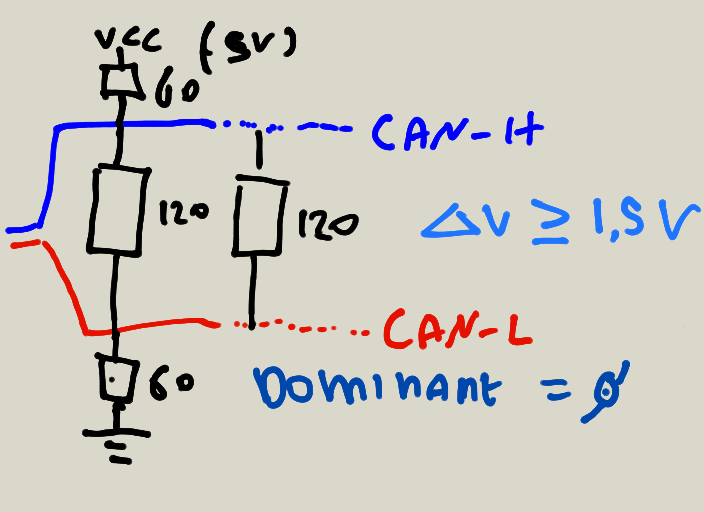 VCC (5V)
60
CAN-H
120
120
ΔV ≥ 1,5V
CAN-L
60
DOMINANT = 0